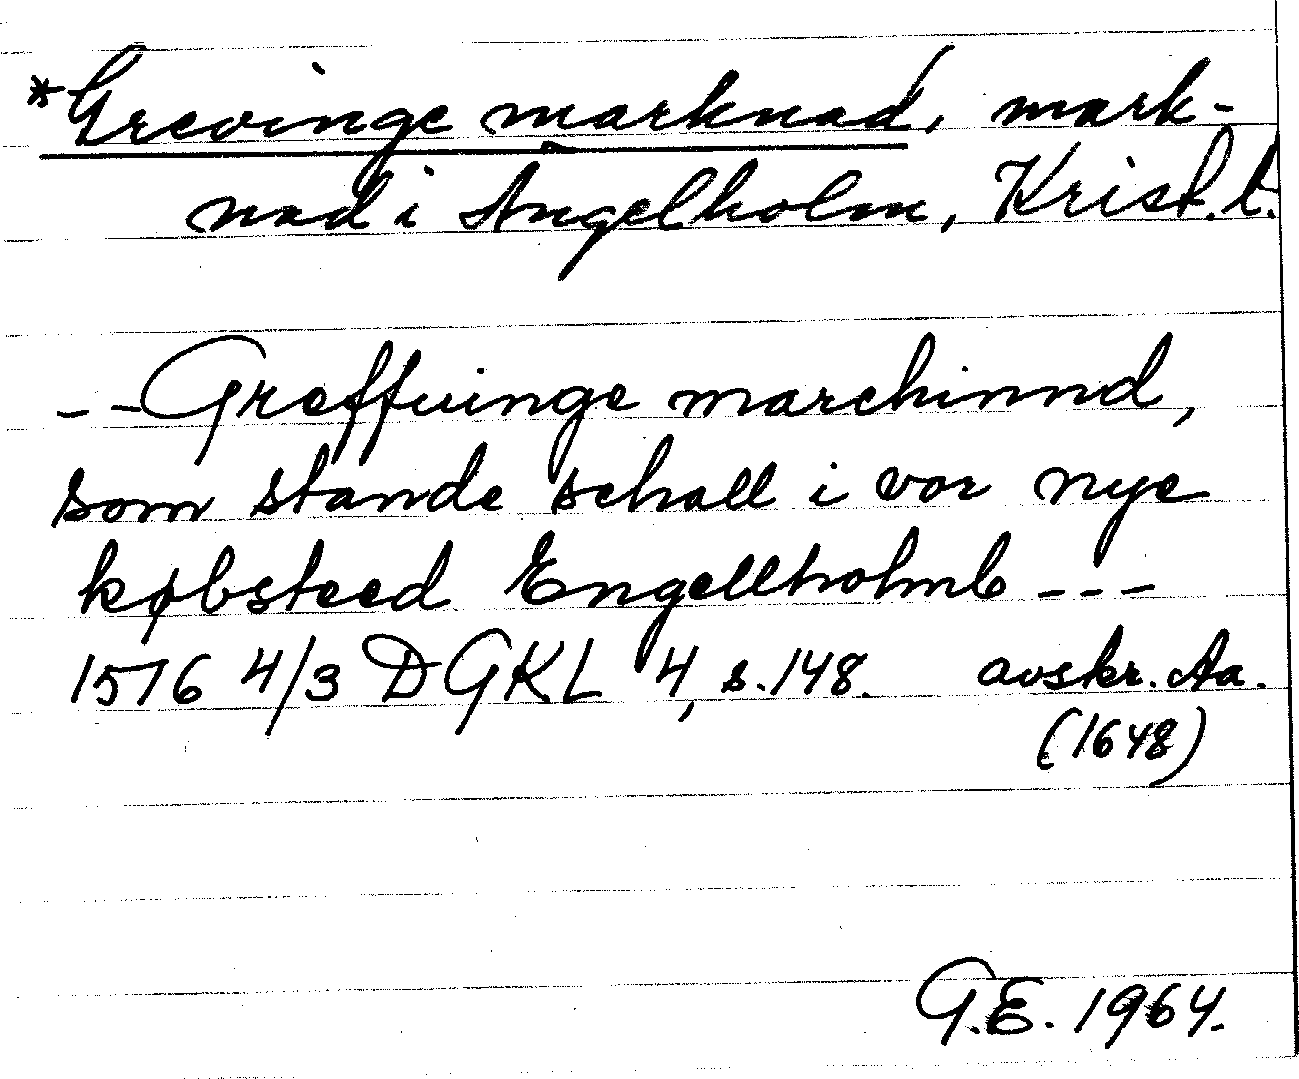 *Grevinge marknad, mark-
nad i Ängelholm, Krist. l.
-- Greffuinge marchinnd,
som stande schall i vor nye
købsteed Engellholmb ---
1576 4/3 DGKL 4, s. 148. avskr. Aa.
(1648)
G.E. 1964.